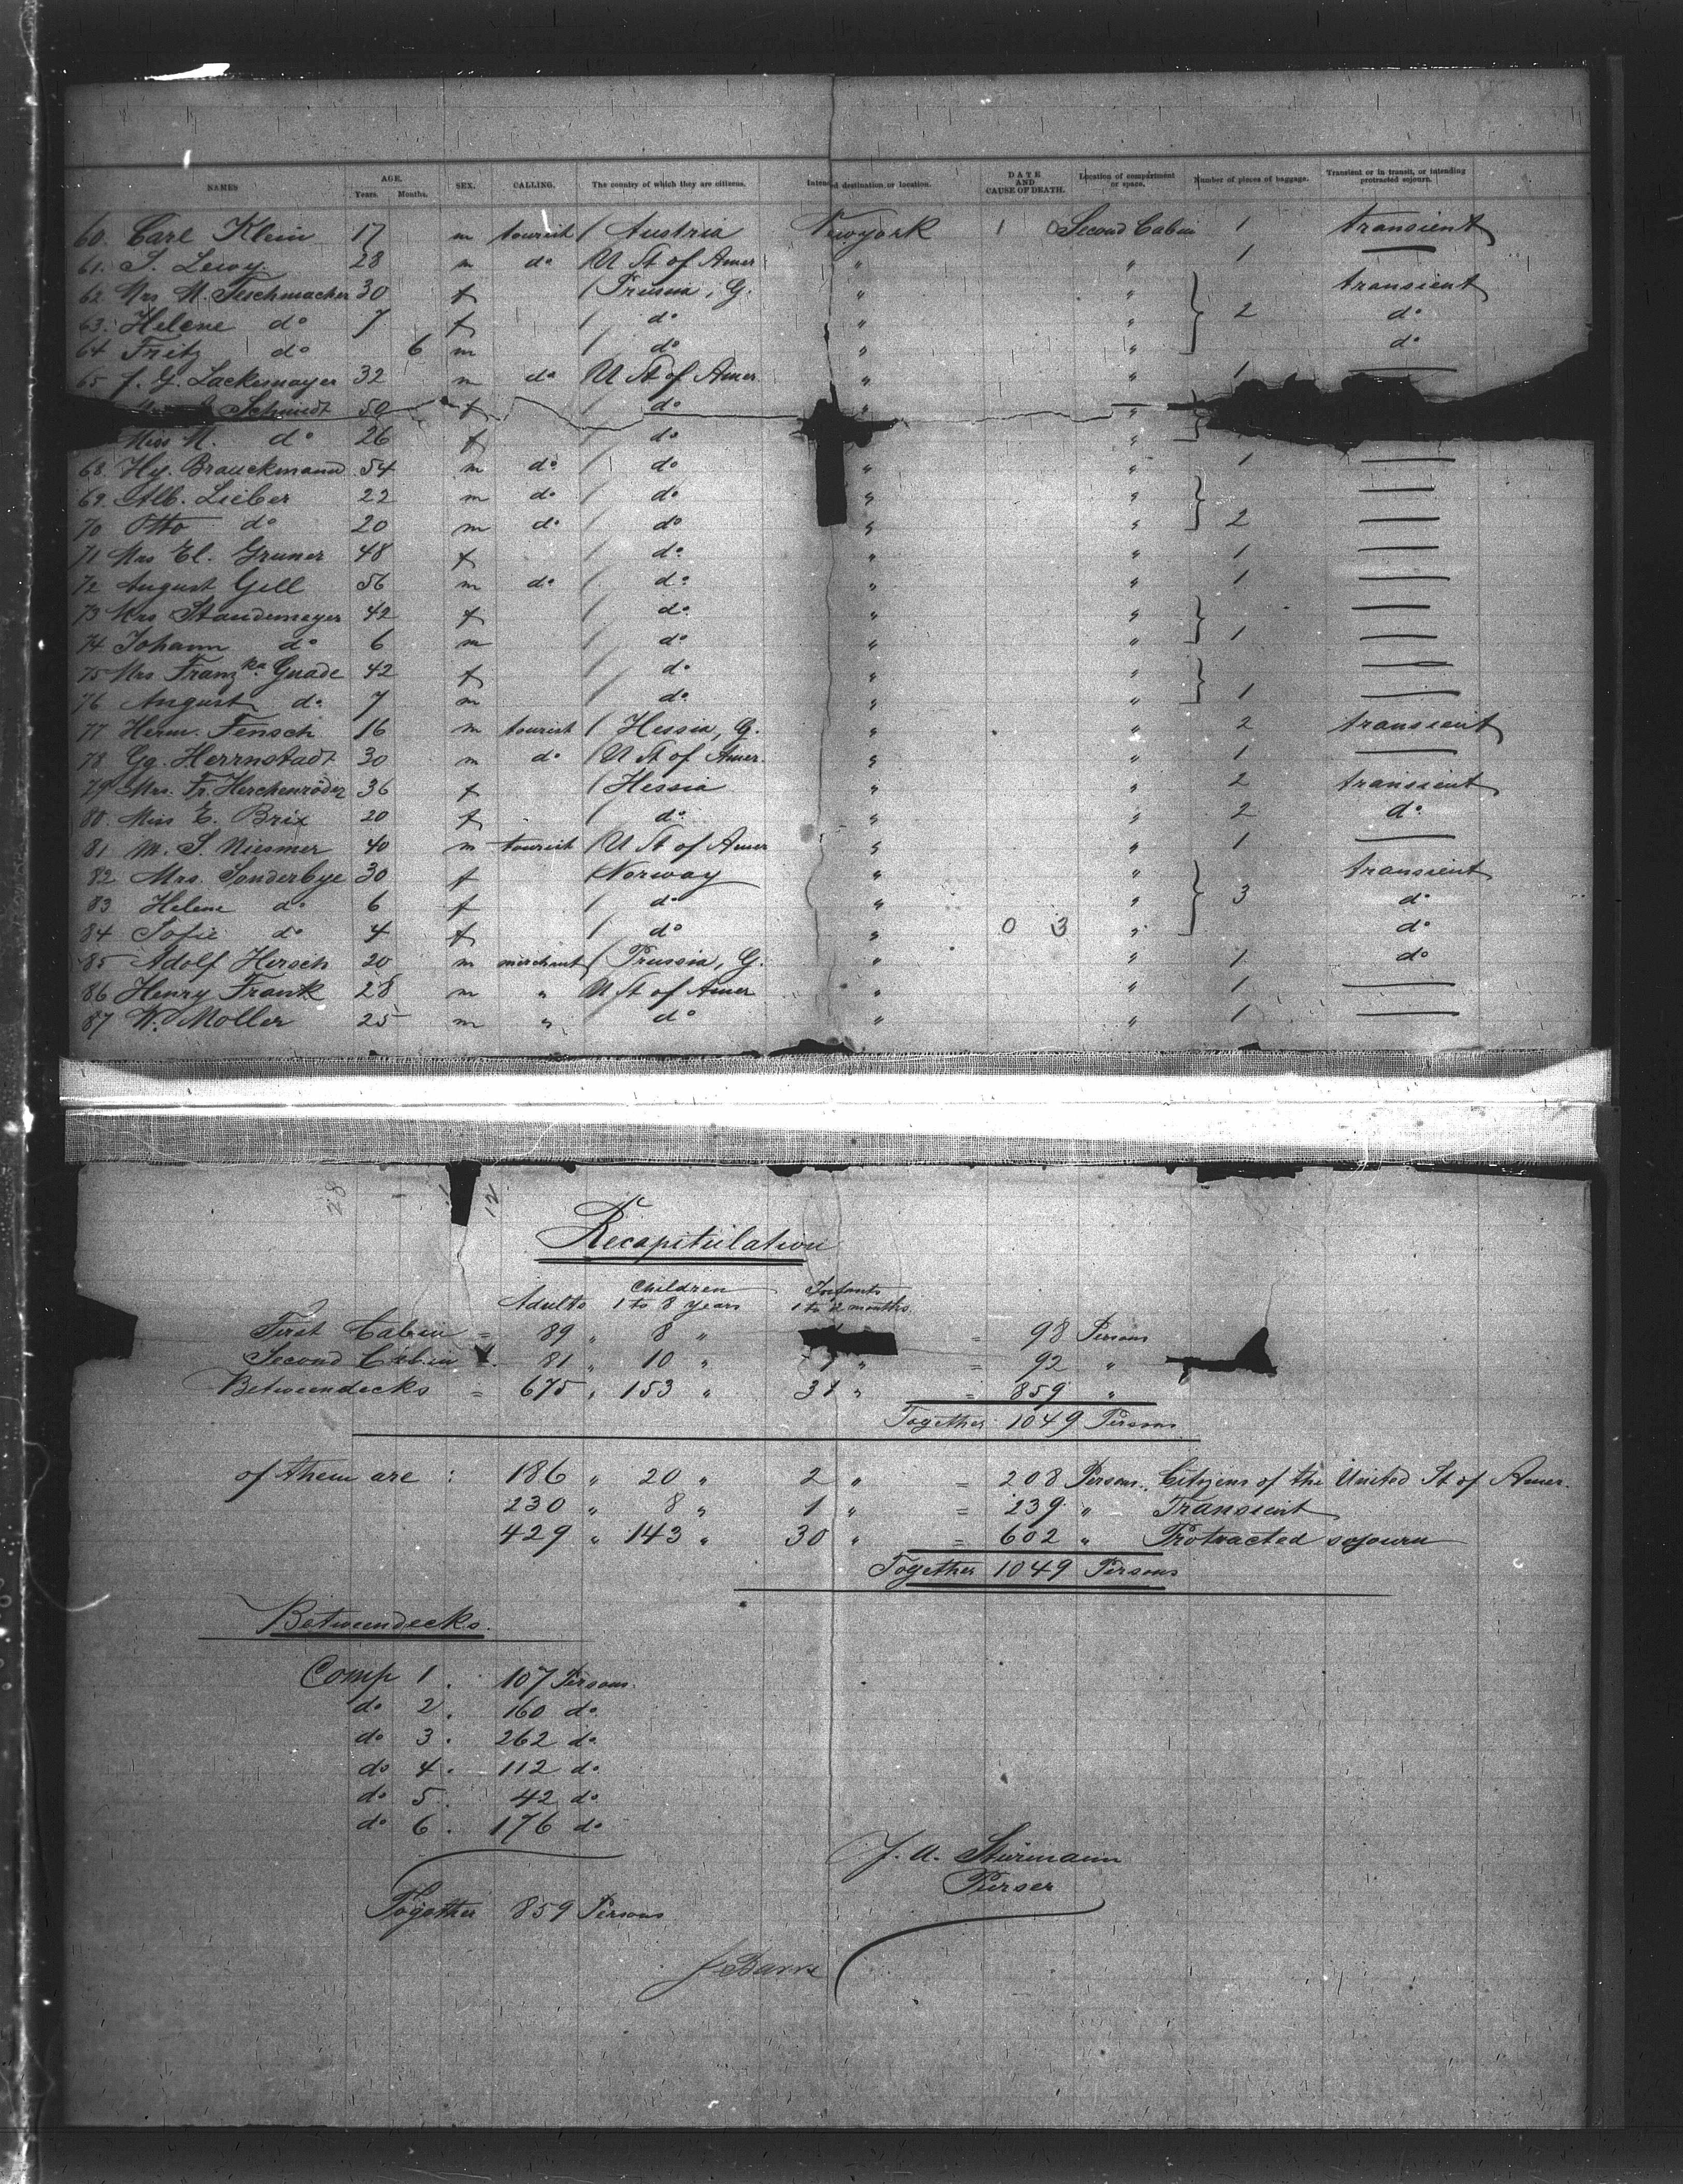 NAMES AGE. Years. Months. SEX. CALLING. The country of which they are citizens. Intended destination or location. DATE AND CAUSE OF DEATH. Location of compartment or space. Number of pieces of baggage. Transient or in transit, or intending protracted sojourn.
60. Carl Klein 17 m tourist / Austria Newyork 1 0 Second Cabin 1 transient
61. S. Lewy 28 m do / U St of Amer " " 1 —
62 Mrs M. Teschmacher 30 f / Prussia, G. " " transient
63. Helene do 7 f / do " " 2 do
64 Fritz do 6 m / do " " do
65 J. G. Lackemayer 32 m do U St of Amer. " " 1 —
Schmidt 50 f / do " "
Miss M. do 26 f / do " "
68. Hy. Brauckmann 54 m do / do " " 1 —
69. Alb. Lieber 22 m do / do " " —
70 Otto do 20 m do / do " " 2 —
71 Mrs El. Gruner 48 f / do " " 1 —
72 August Gell 56 m do / do " " 1 —
73 Mrs Staudemeyer 42 f / do " " —
74 Johann do 6 m / do " " 1 —
75 Mrs Franzka. Gnade 42 f / do " " —
76 August do 7 m / do " " 1 —
77 Herm. Fensch 16 m tourist / Hessia, G. " " 2 transient
78 Gg. Herrnstadt 30 m do / U St of Amer. " " 1 —
79 Mrs. Fr. Herchenröder 36 f / Hessia " " 2 transient
80. Miss E. Brix 20 f / do " " 2 do
81 M. S. Niesmer 40 m tourist / U St of Amer " " 1 —
82 Mrs. Sonderbye 30 f / Norway " " transient
83 Helene do 6 f / do " " 3 do
84 Sofie do 4 f / do " 0 3 " do
85 Adolf Hersch 20 m merchant / Prussia, G. " " 1 do
86 Henry Frank 28 m " U St of Amer " " 1 —
87 W. Moller 25 m " do " " 1 —
28 12
Recapitulation
Adults Children 1 to 8 years Infants 1 to 12 months
First Cabin = 89 " 8 " = 98 Persons
Second Cabin 81 " 10 " 1 " = 92 "
Betweendecks = 675 " 153 " 31 " = 859 "
Together 1049 Persons
of them are : 186 " 20 " 2 " = 208 Persons. Citizens of the United St of Amer.
230 " 8 " 1 " = 239 " Transient
429 " 143 " 30 " = 602 " Protracted sojourn
Together 1049 Persons
Betweendecks.
Comp 1. 107 Persons.
do 2. 160 do.
do 3. 262 do.
do 4. 112 do.
do 5. 42 do
do 6. 176 do
Together 859 Persons
J. A. Stürmann
Purser
J Barre